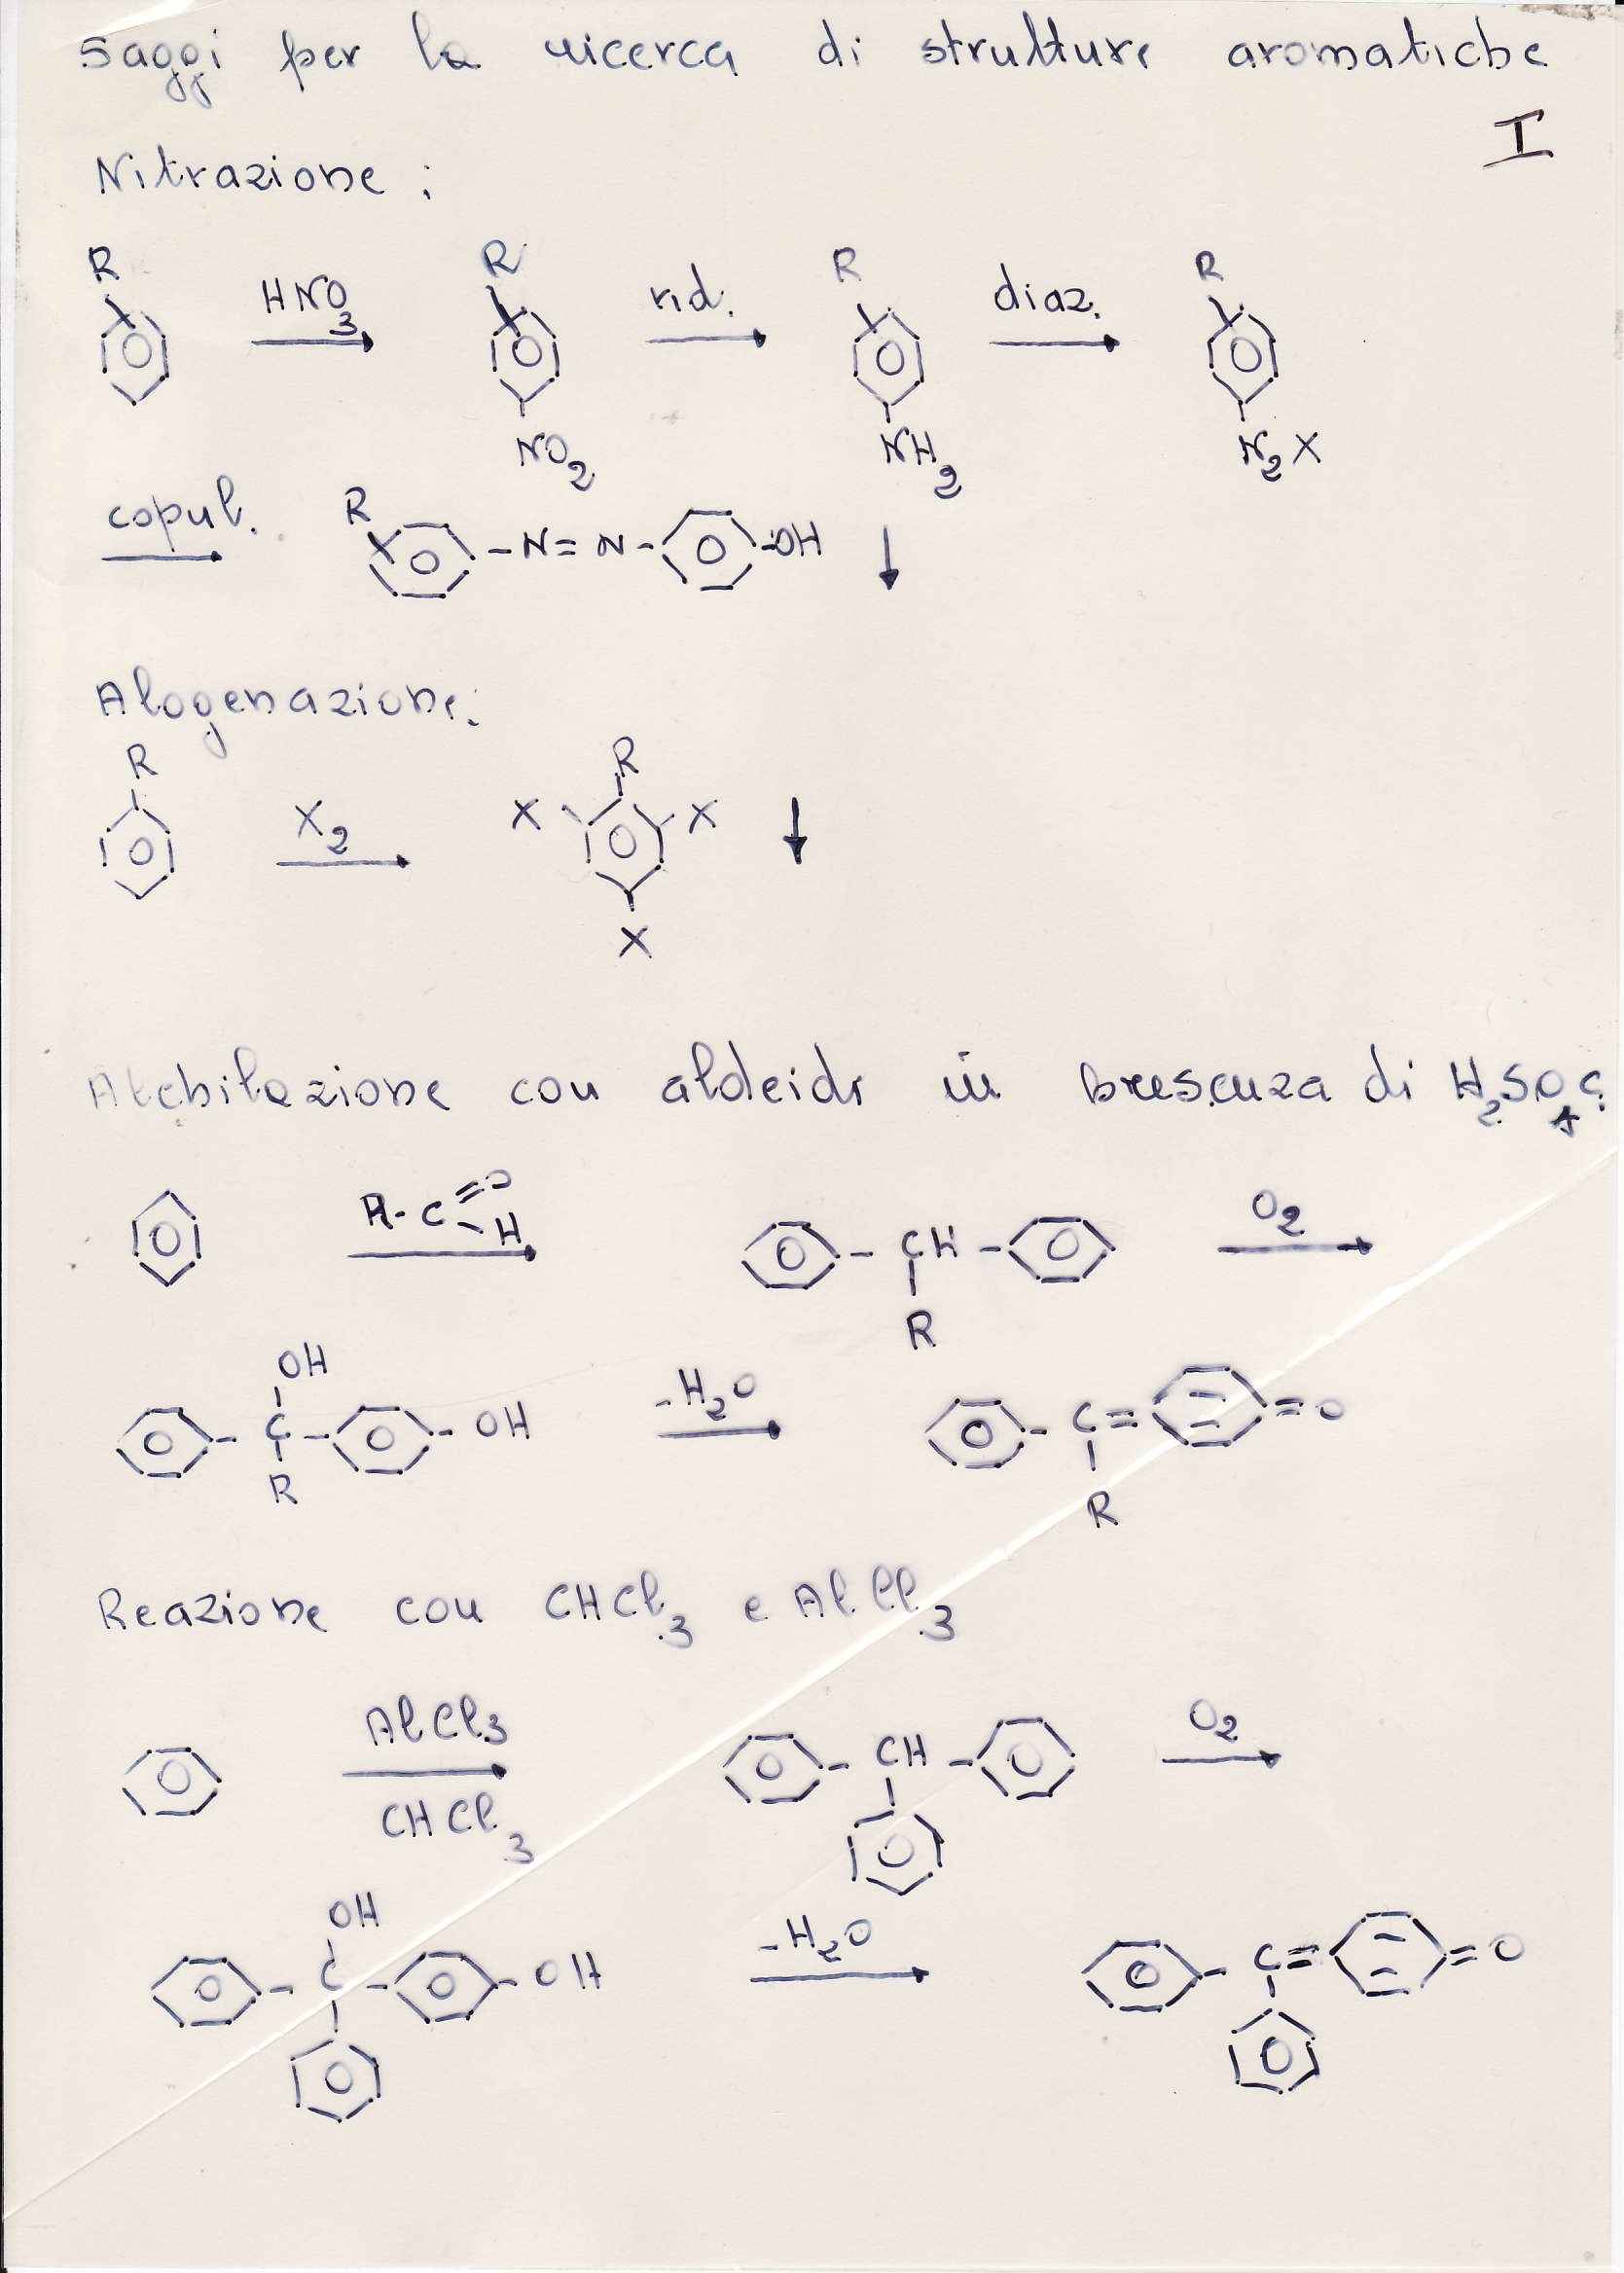 Saggi per la ricerca di strutture aromatiche
I
Nitrazione:
R HNO3 R rid. R diaz. R
NO2 NH2 N2X
copul. R -N=N- -OH ↓
Alogenazione:
R X2 X R X ↓
X
Alchilazione con aldeidi in presenza di H2SO4 c.
R-C=O H CH O2
R
OH
C OH -H2O C= =O
R R
Reazione con CHCl3 e AlCl3
AlCl3 CH O2
CHCl3
OH
C OH -H2O C= =O